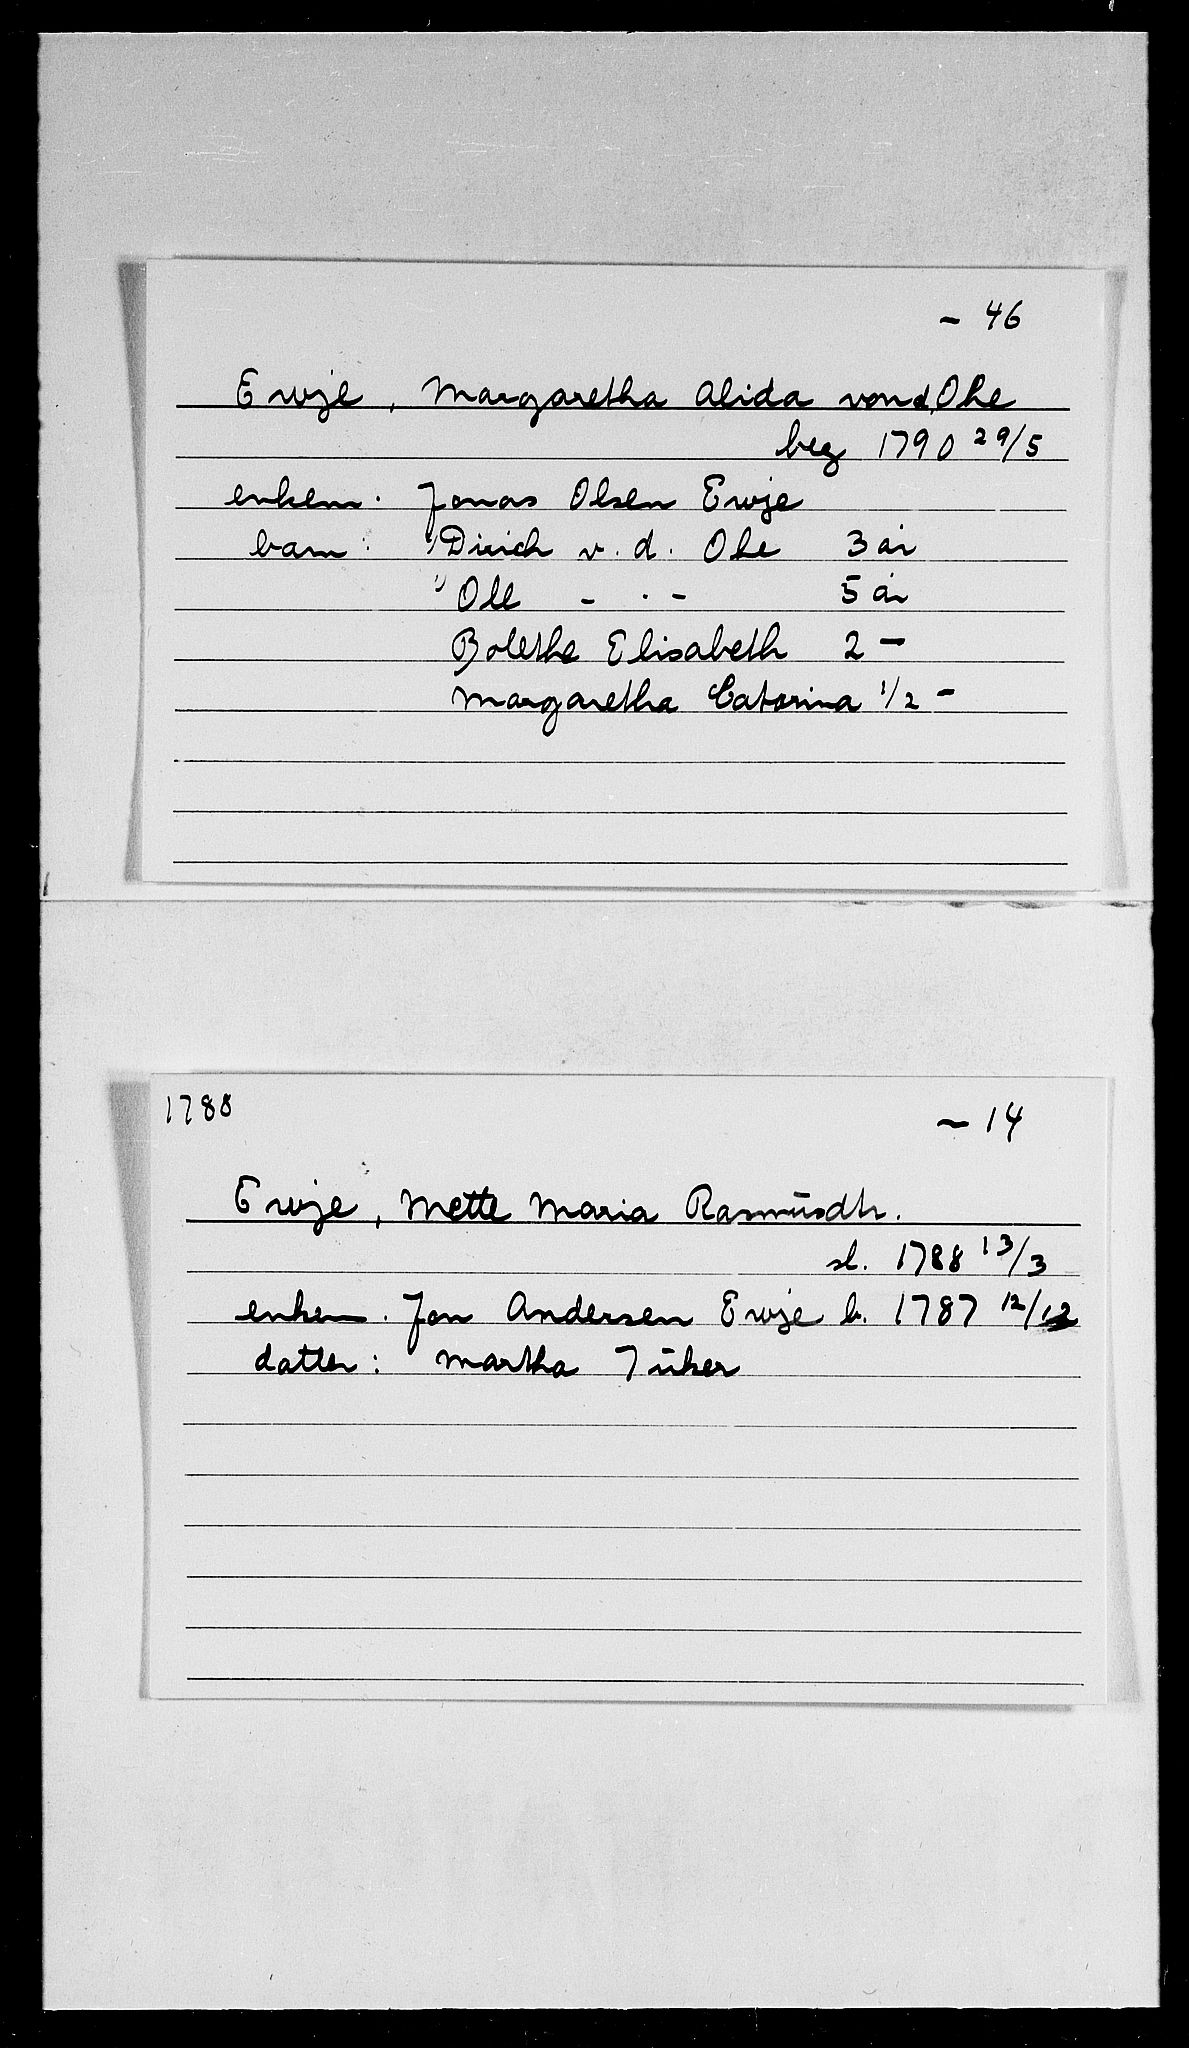 - 46
Ervje, Margaretha Alida von d. Ohe
beg 1790 29/5
enkem. Jonas Olsen Ervje
barn: 1) Dirich v. d. Ohe 3 år
") Ole - . - 5 år
Bolethe Elisabeth 2 -
Margaretha Catarina 1/2 -
1788
- 14
Ervje, Mette Maria Rasmusdtr.
sl. 1788 13/3
enkem. Jon Andersen Ervje b. 1787 12/12
datter: Martha